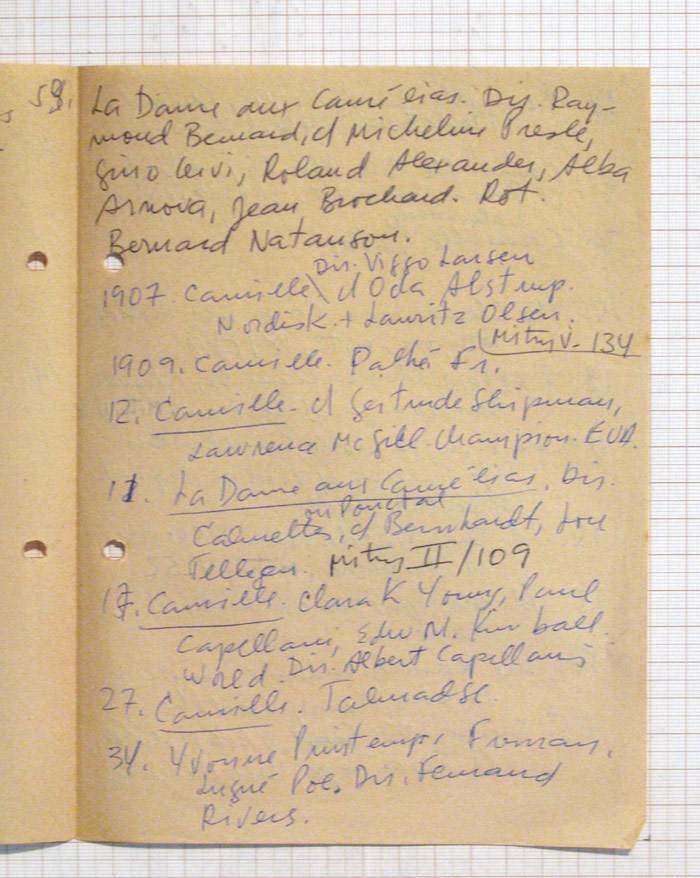 59. La Dame aux Camélias. Dir. Ray-
mond Bernard, c/ Micheline Presle,
Gino Cervi, Roland Alexander, Alba
Arnova, Jean Brochard. Rot.
Bernard Natanson.
Dir. Viggo Larsen
1907. Camille c/ Oda Alstrup.
Nordisk + Lauritz Olsen.
Mitry V- 134
1909. Camille. Pathé Fr.
12. Camille. c/ Gertrude Shipman,
Lawrence McGill. Champion. EUA.
11. La Dame aux Camélias. Dir.
ou Pouctal
Calmettes, c/ Bernhardt, Lou
Tellegen. Mitry II/109
17. Camille. Clara K Young, Paul
Capellani, Edw M. Kimball.
World. Dir. Albert Capellani
27. Camille. Talmadge.
34. Yvonne Printemps, Fresnay,
Lugné Poe. Dir. Fernand
Rivers.